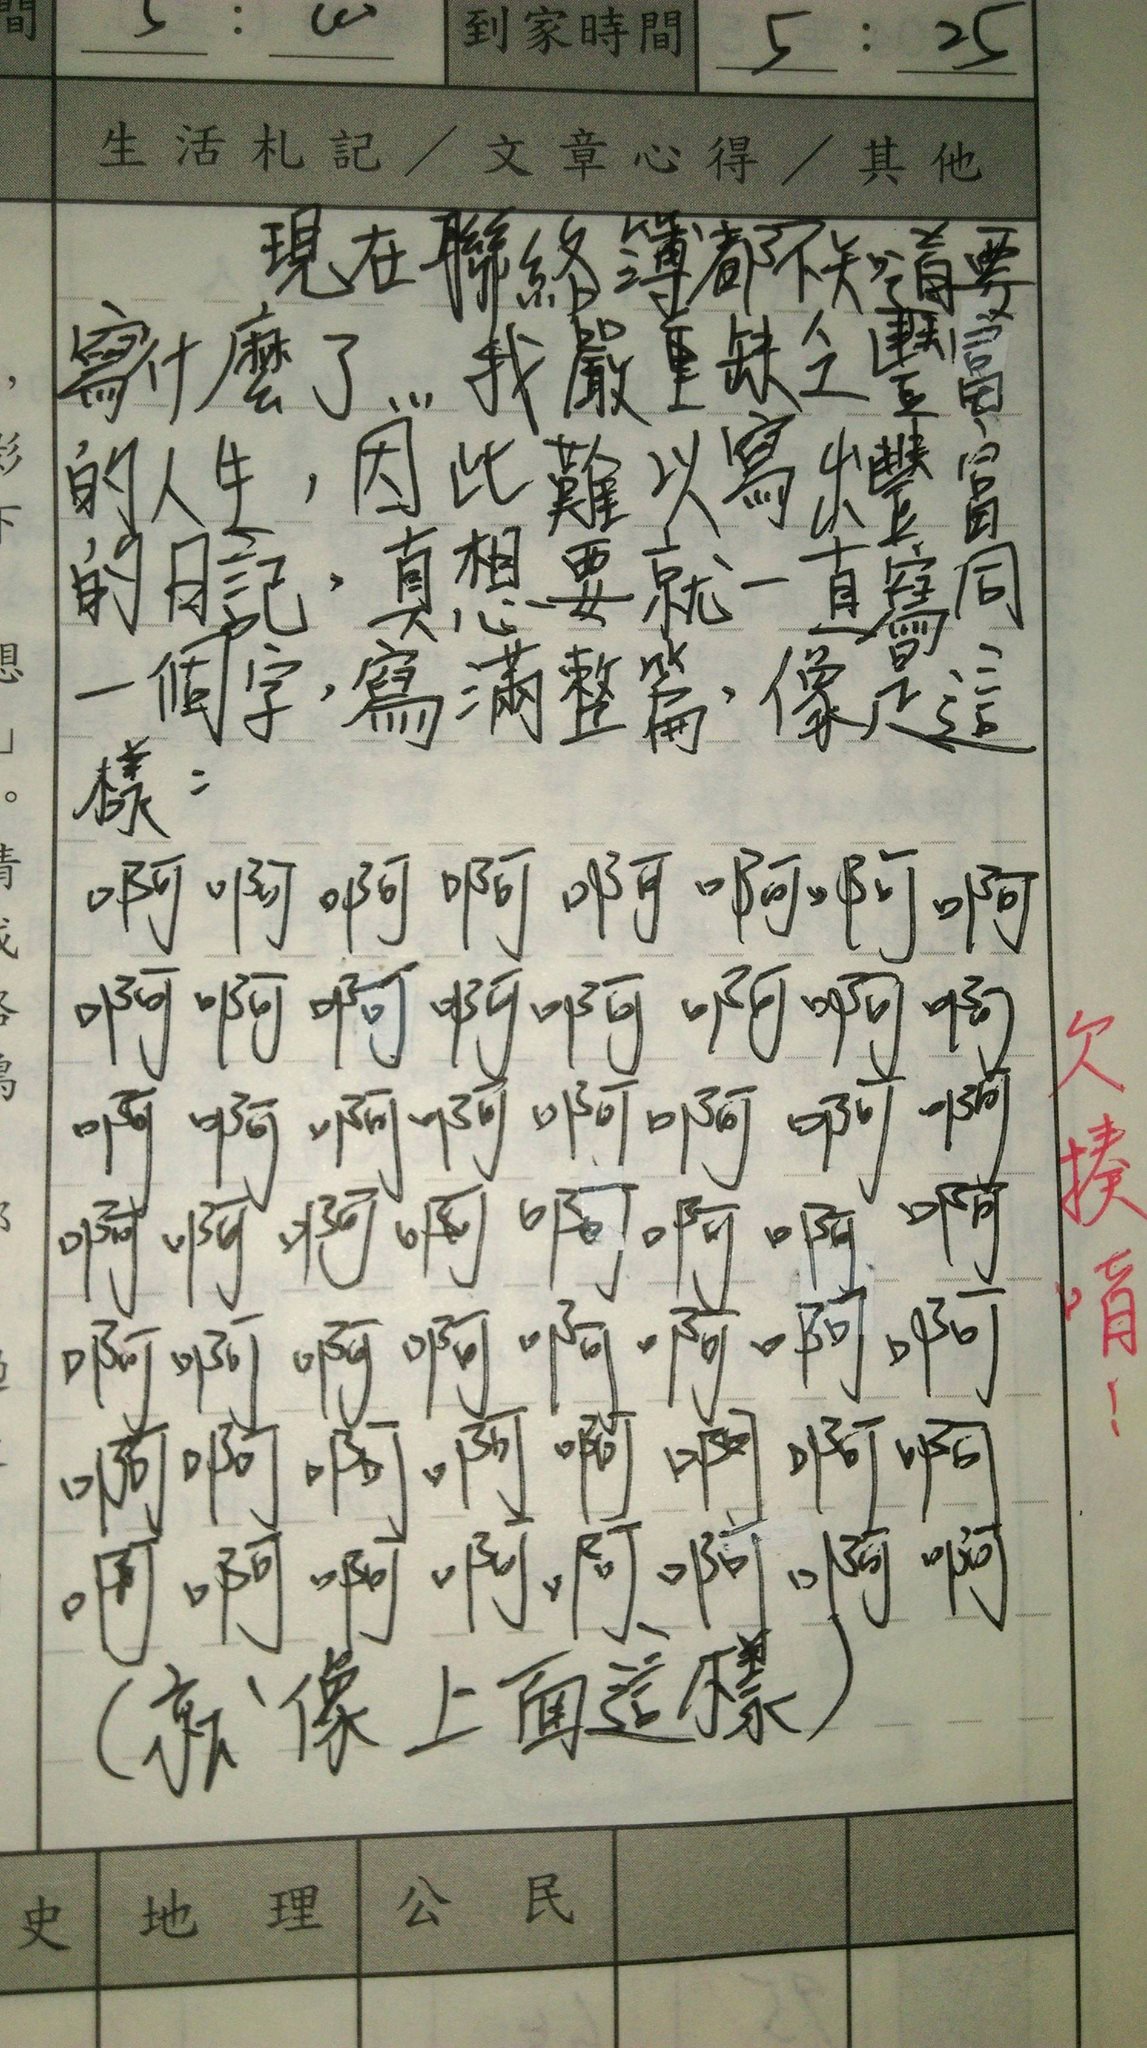 間 5 : 到家時間 5 : 25
生活札記／文章心得／其他
現在聯絡簿都不知道要
寫什麼了…我嚴重缺乏豐富
的人生，因此難以寫出豐富
的日記，真想要就一直寫同
一個字，寫滿整篇，像是這
樣：
啊啊啊啊啊啊啊啊
啊啊啊啊啊啊啊啊
啊啊啊啊啊啊啊啊
啊啊啊啊啊啊啊啊
啊啊啊啊啊啊啊啊
啊啊啊啊啊啊啊啊
啊啊啊啊啊啊啊啊
(就像上面這樣)
欠揍唷！
史 地理 公民